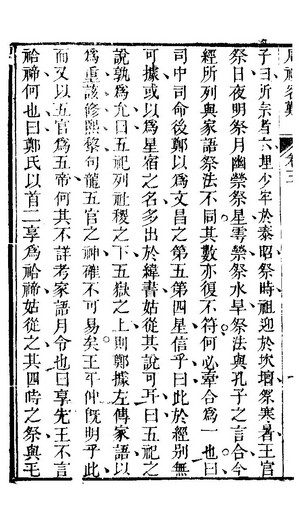 子曰所宗者六埋少牢於泰昭祭時祖迎於坎壇祭寒暑王宮
祭日夜明祭月幽禜祭星雩禜祭水旱祭法與孔子之言合今
經所列與家語祭法不同其數亦復不符何必牽合爲一也曰
司中司命後鄭以爲文昌之第五第四星信乎曰此於經別無
可據或以爲星宿之名多出於緯書姑從其說可耳曰五祀之
說孰爲允曰五祀列社稷之下五嶽之上則鄭據左傳家語以
爲重該修熙黎句龍五官之神確不可易矣王平仲既明乎此
而又以五官爲五帝何其不詳考家語月令也曰享先王不言
祫禘何也曰鄭氏以首二享爲祫禘姑從之其四時之祭與毛
卷三